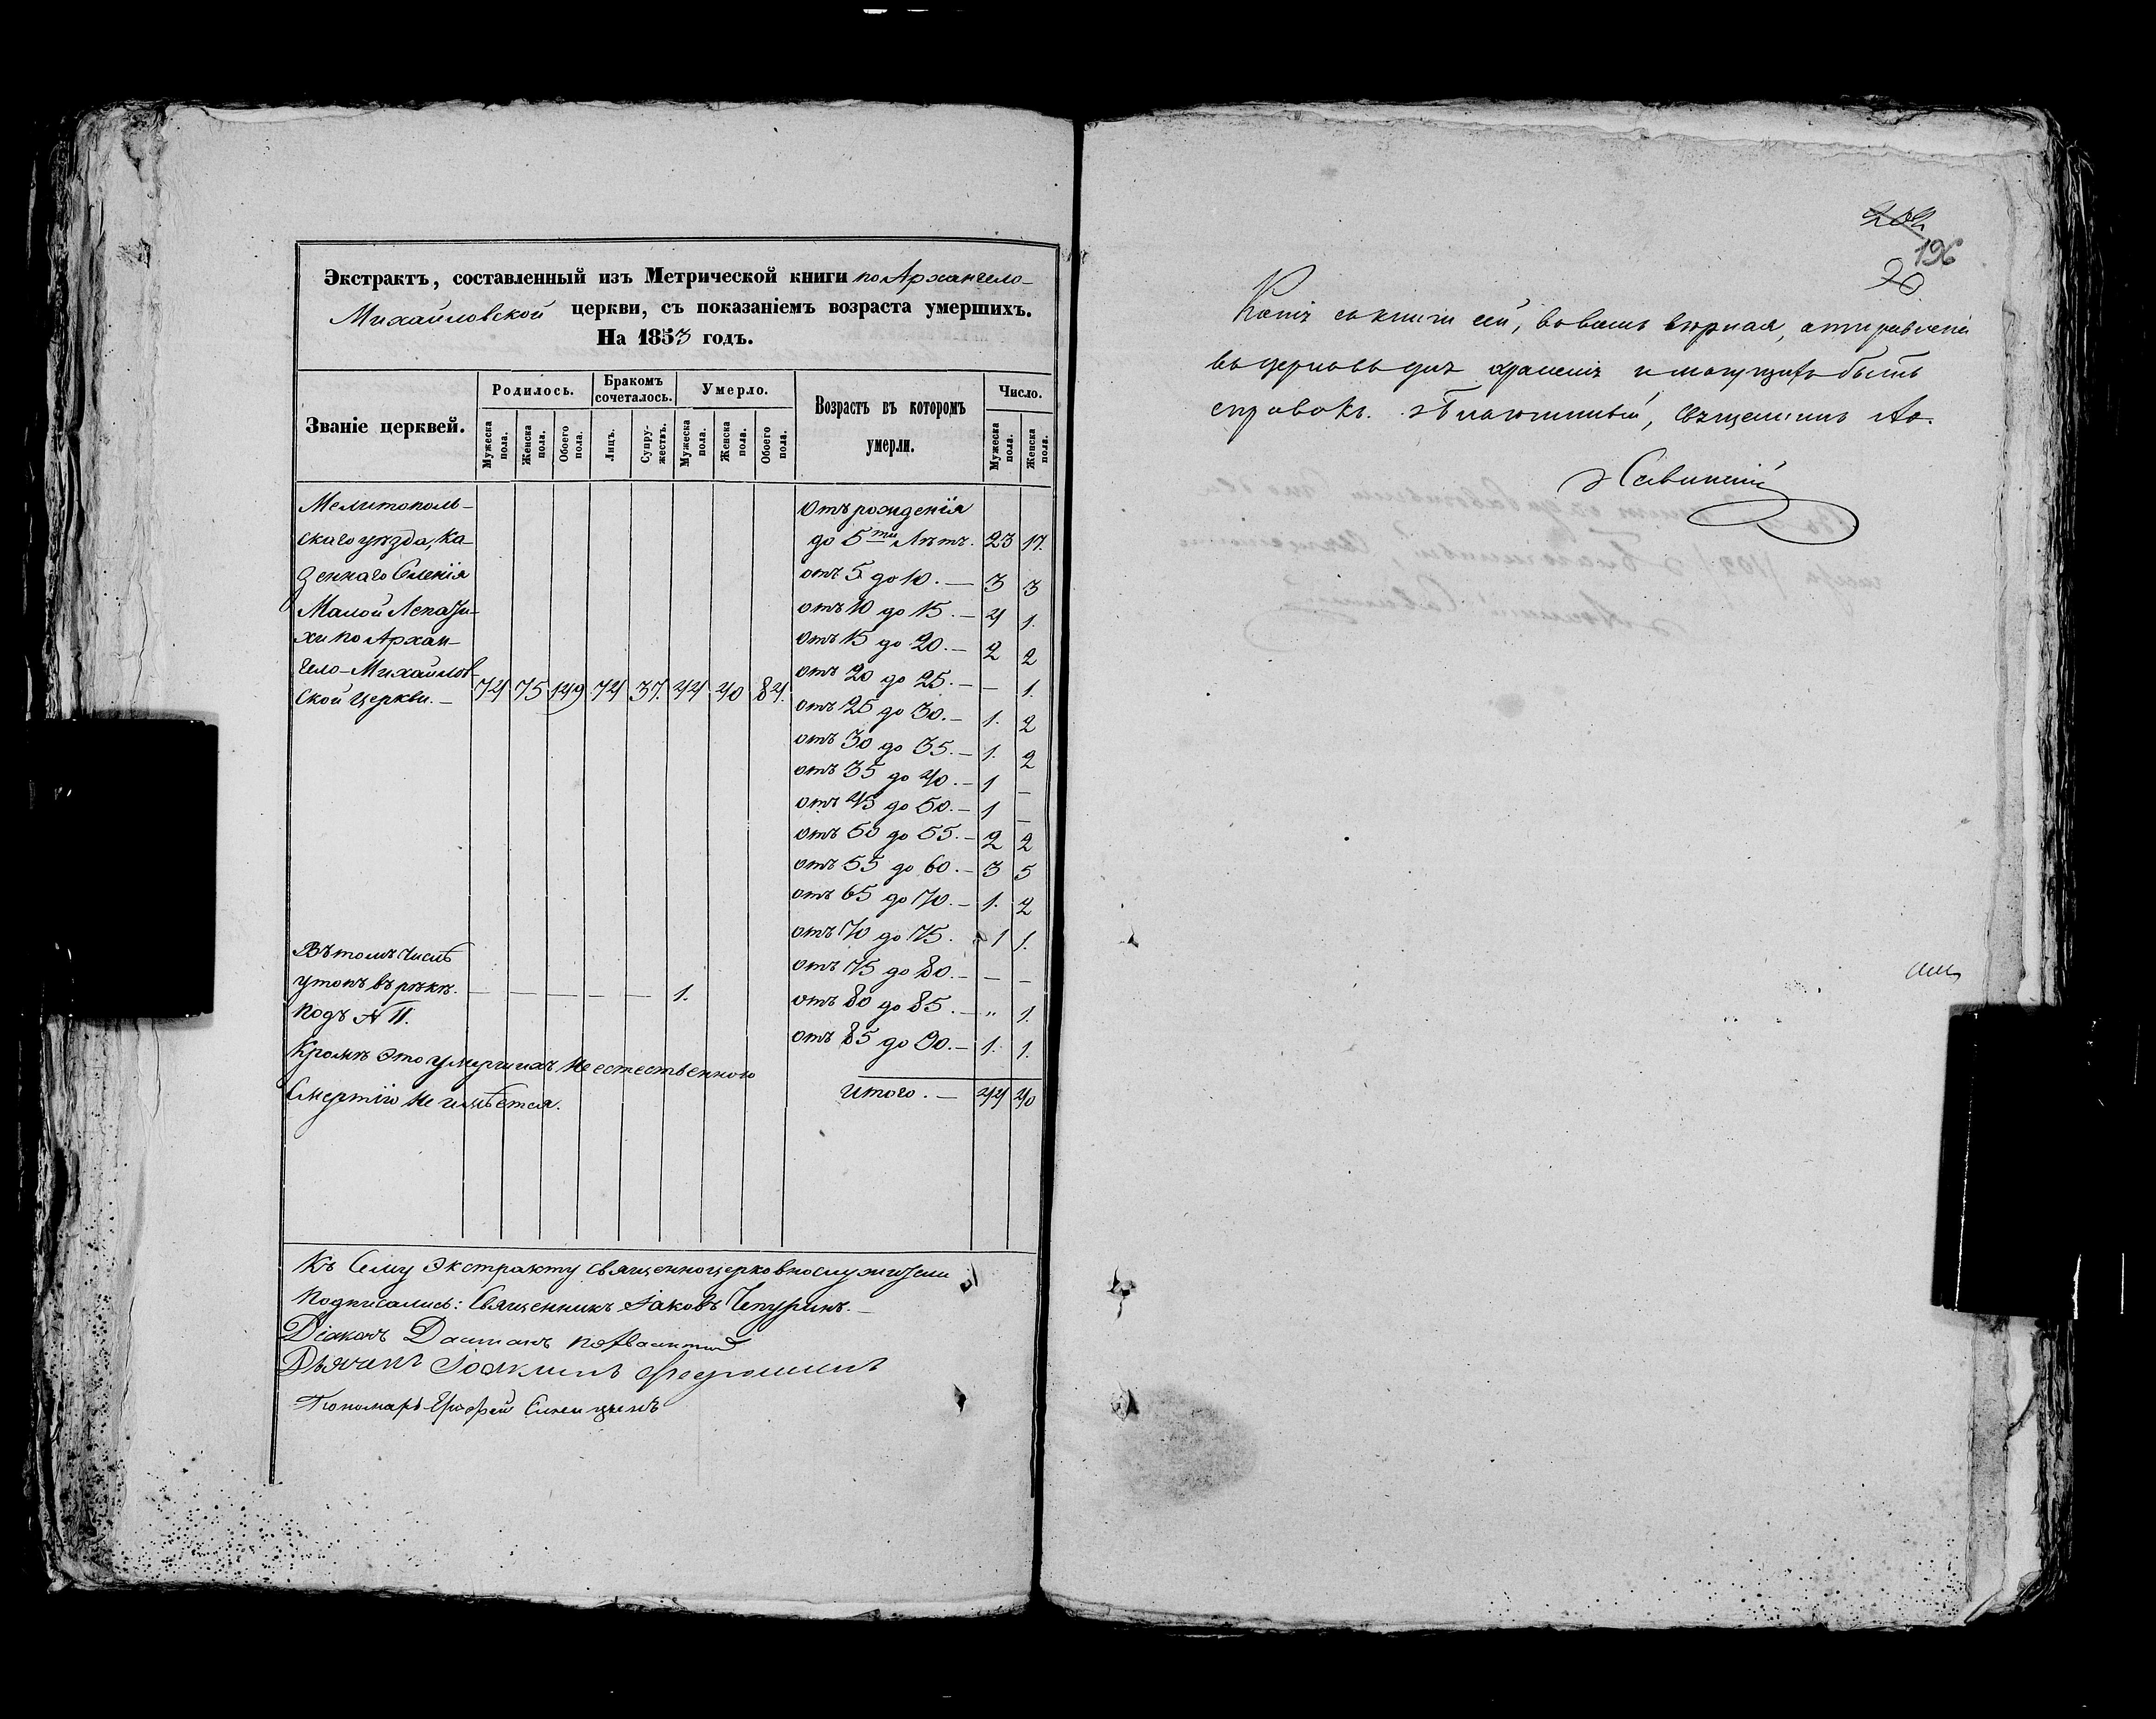 Экстрактъ, составленный изъ Метрической книги по Архангело-
Михайловской церкви, съ показаніемъ возраста умершихъ.
На 1853 годъ.
Званіе церквей.
Родилось.
Бракомъ сочеталось.
Умерло.
Возрастъ въ которомъ умерли.
Число.
Мужеска пола.
Женска пола.
Обоего пола.
Лицъ.
Супружествъ.
Мужеска пола.
Женска пола.
Обоего пола.
Мужеска пола.
Женска пола.
Мелитополь-
скаго уѣзда, Ка-
зеннаго Селенія
Малой Лепати-
хи по Архан-
гело-Михайлов-
ской Церкви. — 74 75 149 74 37. 44 40 84.
Отъ рожденія
до 5ти Лѣтъ. 23 17.
отъ 5 до 10. — 3 3
отъ 10 до 15. — 4 1.
отъ 15 до 20. — 2 2
отъ 20 до 25. — — 1.
отъ 25 до 30. — 1. 2
отъ 30 до 35. — 1. 2
отъ 35 до 40. — 1 —
отъ 45 до 50. — 1 —
отъ 50 до 55. — 2 2
отъ 55 до 60. — 3 5
отъ 65 до 70. — 1. 2
отъ 70 до 75. 1 1.
отъ 75 до 80. — — —
отъ 80 до 85. — „ 1.
отъ 85 до 90. — 1. 1.
Итого. — 44 40
Въ томъ числѣ
утопъ въ рѣкѣ. — — — — — 1.
подъ №
Кромѣ Этого умершихъ не естественного
Смертію не имѣется.
Къ Сему Экстракту священноцерковнослужители
подписались: Священникъ Іаковъ Чепуринъ. —
Діаконъ
Дьячекъ Іоакимъ
Пономарь
202
196
26
Копія съ книги сей, во всемъ вѣрная, отправлена
въ церковь для храненія и могущихъ быть
справокъ. Благочинный, Священникъ
Савинскій